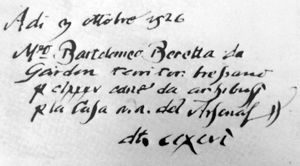 Adi 9 ottobre 1526
Mro Bartolomeo Beretta da
Gardon territor bressano
p clxxxv cane da archibusi
p la Casa n.ra del Arsenal
dti cclxxxxvi